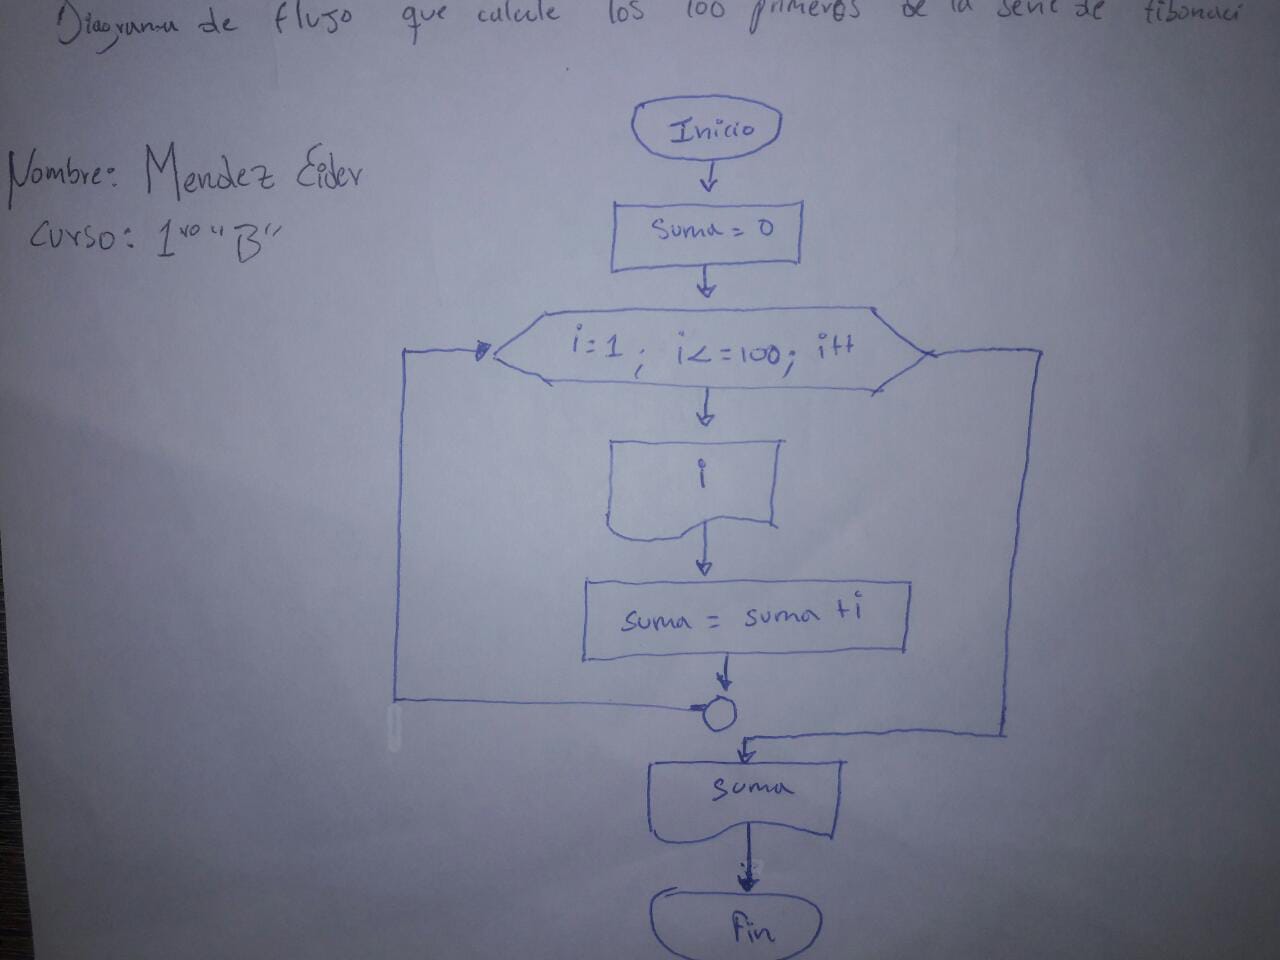 Diagrama de flujo que calcule los 100 primeros de la serie de fibonaci
Nombre: Mendez Eider
Curso: 1ro "B"
Inicio
Suma = 0
i=1; i<=100; i++
i
suma = suma + i
suma
Fin